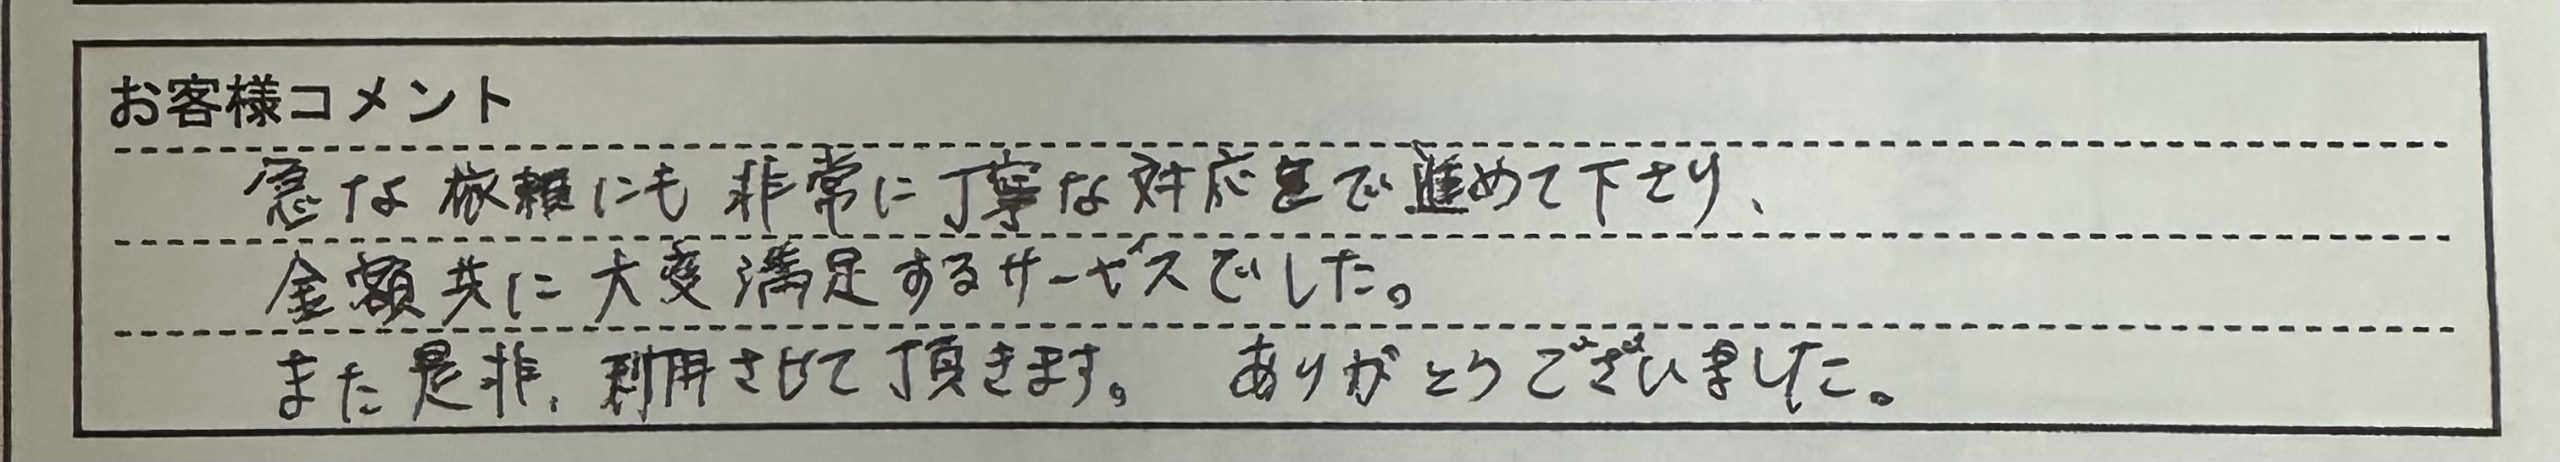 お客様コメント
急な依頼にも非常に丁寧な対応で進めて下さり、
金額共に大変満足するサービスでした。
また是非、利用させて頂きます。 ありがとうございました。